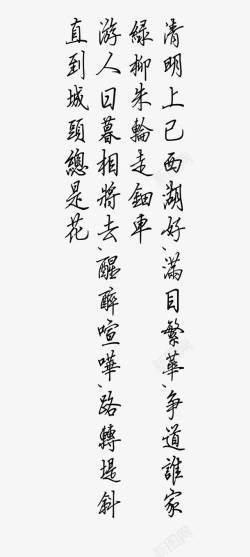 清明上巳西湖好、滿目繁華、爭道誰家
綠柳朱輪走鈿車
游人日暮相將去、醒醉喧嘩、路轉堤斜
直到城頭總是花